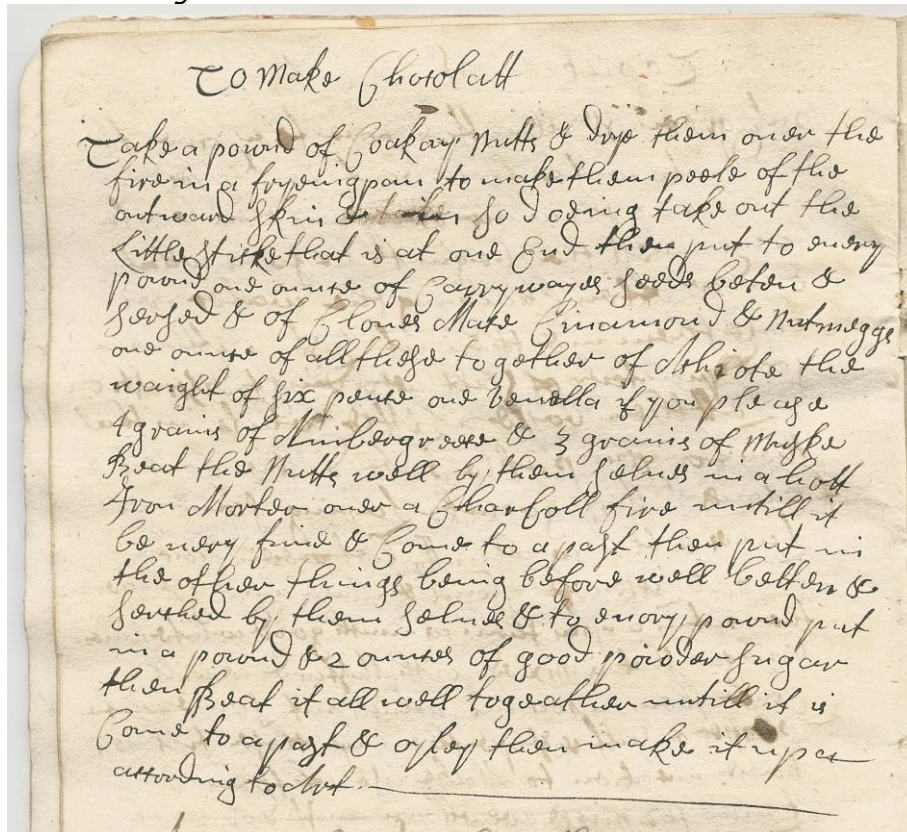 To Make Chocolatt
Take a pound of Coakay Nutts & drye them over the
fire in a fryeing pan to make them peele of the
outward skin so doeing take out the
Little sticke that is at one End then put to every
pound one ounce of Carrywayes seeds beten &
serched & of Cloues Mace Cinamond & Nutmeggs
one ounce of all these together of Achiote the
waight of six pence one benella if you please
4 grains of Ambergreece & 3 grains of Muske
Beat the Nutts well by them selues in a hott
Iron Morter ouer a Charcoll fire untill it
be uery fine & Come to a past then put in
the other things being before well betten &
serched by them selues & to euery pound put
in a pound & 2 ounces of good powder sugar
then Beat it all well togeather untill it is
Come to a past & oyley then make it up
according to Art